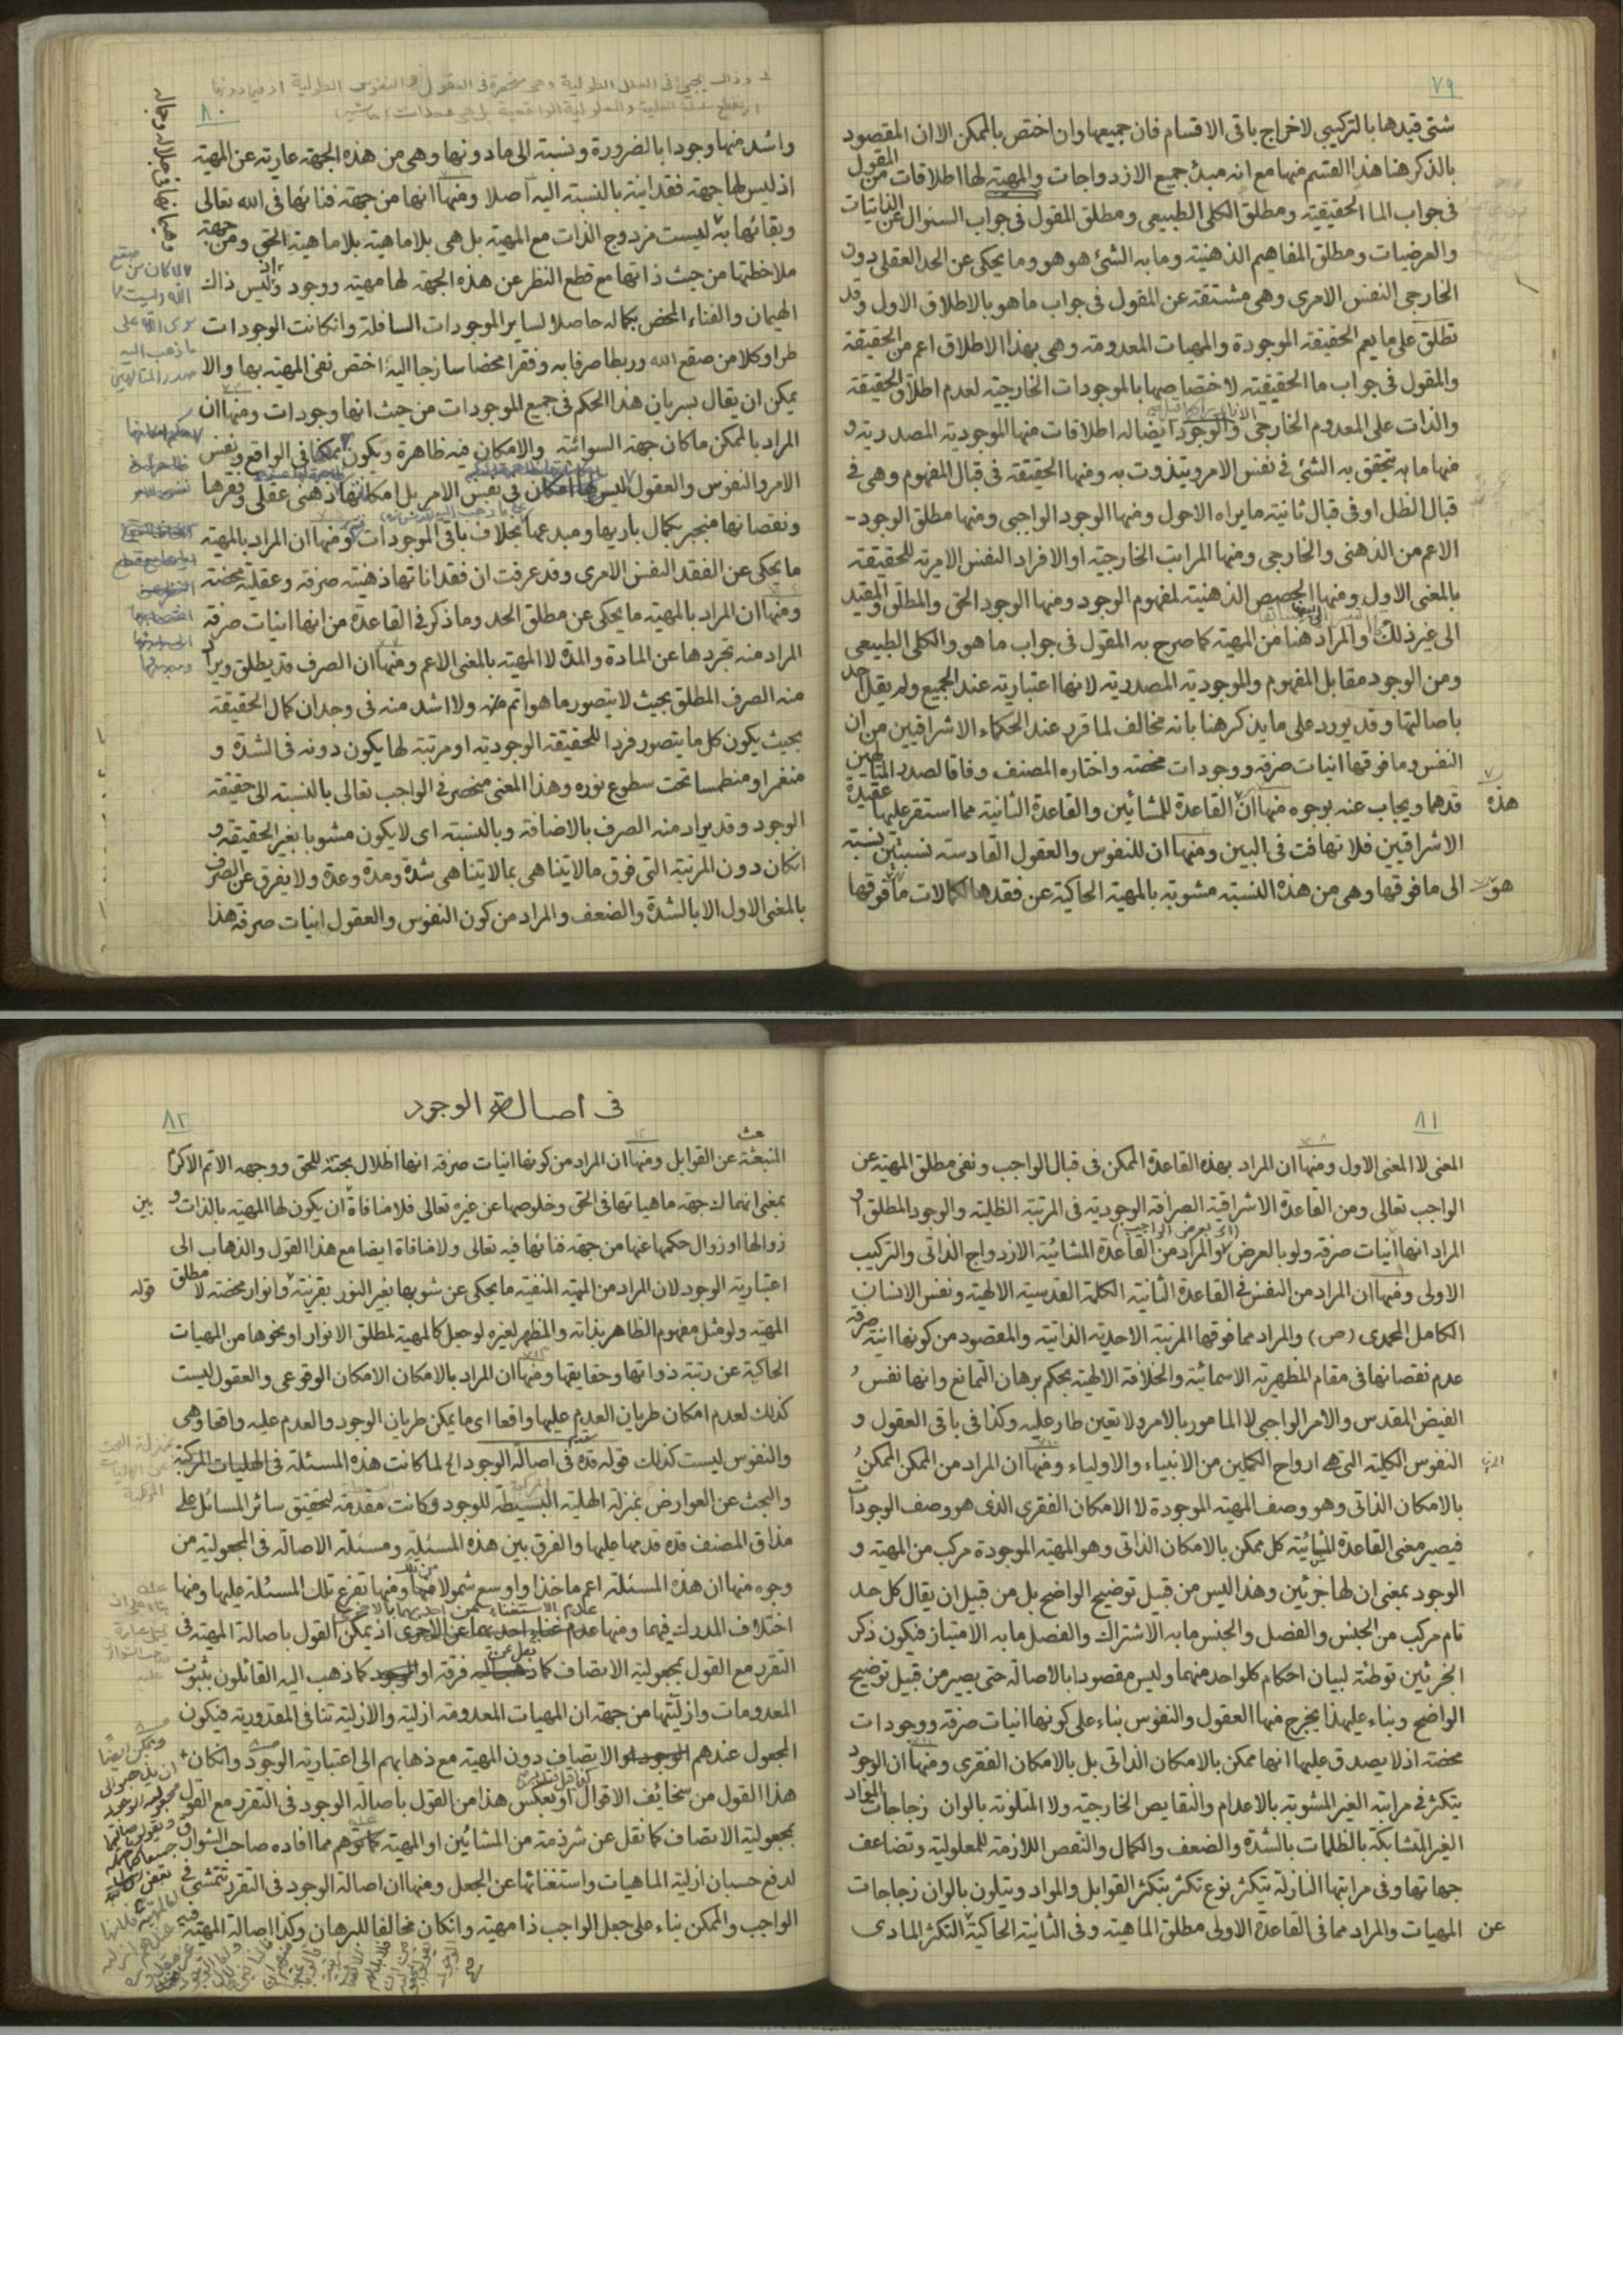 ٧٩
شتى قيدها بالتركيبى لاخراج باقى الاقسام فان جميعها وان اختص بالممكن الا ان المقصود
بالذكر هنا هذا القسم منها مع انه مبدئ جميع الازدواجات والمهية لها اطلاقات من المقول
فى جواب الما الحقيقية ومطلق الكلى الطبيعى ومطلق المقول فى جواب السئوال عن الذاتيات
والعرضيات ومطلق المفاهيم الذهنية وما به الشئ هو هو وما يحكى عن الحد العقلى دون
الخارجى النفس الامرى وهى مشتقة عن المقول فى جواب ما هو بالاطلاق الاول وقد
تطلق على ما يعم الحقيقة الموجودة والمهيات المعدومة وهى بهذا الاطلاق اعم من الحقيقة
والمقول فى جواب ما الحقيقية لاختصاصها بالموجودات الخارجية لعدم اطلاق الحقيقة
والذات على المعدوم الخارجى والوجود ايضا له اطلاقات منها الموجودية المصدرية و
منها ما به يتحقق به الشئ فى نفس الامر ويتذوت به ومنها الحقيقة فى قبال المفهوم وهى فى
قبال الظل او فى قبال ثانية ما يراه الاحول ومنها الوجود الواجبى ومنها مطلق الوجود -
الاعم من الذهنى والخارجى ومنها المراتب الخارجية او الافراد النفس الامرية للحقيقة
بالمعنى الاول ومنها الحصص الذهنية لمفهوم الوجود ومنها الوجود الحق والمطلق والمقيد
الى غير ذلك والمراد هنا من المهية كما صرح به المقول فى جواب ما هو والكلى الطبيعى
ومن الوجود مقابل المفهوم والموجودية المصدرية لانها اعتبارية عند الجميع ولم يقل احد
باصالتها وقد يورد على ما يذكر هنا بانه مخالف لما قرر عند الحكماء الاشراقيين من ان
النفس وما فوقها انيات صرفة ووجودات محضة واختاره المصنف وفاقا لصدر المتالهين
قدهما ويجاب عنه بوجوه منها ان هذه القاعدة للمشائين والقاعدة الثانية مما استقر عليها عقيدة
الاشراقيين فلا تهافت فى البين ومنها ان للنفوس والعقول القادسة نسبتين نسبة
الى ما فوقها وهى من هذه النسبة مشوبة بالمهية الحاكية عن فقدها لكمالات ما هو فوقها
٨٠
واشد منها وجودا بالضرورة ونسبة الى ما دونها وهى من هذه الجهة عارية عن المهية
اذ ليس لها جهة فقدانية بالنسبة اليه اصلا ومنها انها من جهة فنائها فى الله تعالى
وبقائها به ليست مزدوج الذات مع المهية بل هى بلا ماهية بلا ماهية الحق ومن جهة
ملاحظتها من حيث ذاتها مع قطع النظر عن هذه الجهة لها مهية ووجود وليس ذاك
الهيمان والفناء المحض بكماله حاصلا لساير الموجودات السافلة وانكانت الوجودات
طرا وكلا من صقع الله وربطا صرفا به وفقرا محضا سازجا اليه اختص نفى المهية بها والا
يمكن ان يقال بسريان هذا الحكم فى جميع الموجودات من حيث انها وجودات ومنها ان
المراد بالممكن ما كان جهة السوائية والامكان فيه ظاهرة ويكون ممكنا فى الواقع ونفس
الامر والنفوس والعقول ليس لها امكان فى نفس الامر بل امكانها ذهنى عقلى وفقرها
ونقصانها منجبر بكمال باريها ومبدعها بخلاف باقى الموجودات ومنها ان المراد بالمهية
ما يحكى عن الفقد النفس الامرى وقد عرفت ان فقداناتها ذهنية صرفة وعقلية محضة
ومنها ان المراد بالمهية ما يحكى عن مطلق الحد وما ذكر فى القاعدة من انها انيات صرفة
المراد منه تجردها عن المادة والمدة لا المهية بالمعنى الاعم ومنها ان الصرف قد يطلق ويراد
منه الصرف المطلق بحيث لا يتصور ما هو اتم منه ولا اشد منه فى وجدان كمال الحقيقة
بحيث يكون كل ما يتصور فردا للحقيقة الوجودية او مرتبة لها يكون دونه فى الشدة و
منغمرا ومنطمسا تحت سطوع نوره وهذا المعنى منحصر فى الواجب تعالى بالنسبة الى حقيقة
الوجود وقد يراد منه الصرف بالاضافة وبالنسبة اى لا يكون مشوبا بغير الحقيقة و
انكان دون المرتبة التى فوق ما لا يتناهى بما لا يتناهى شدة ومدة وعدة ولا يفرق عن الصرف
بالمعنى الاول الا بالشدة والضعف والمراد من كون النفوس والعقول انيات صرفة هذا
٨١
المعنى لا المعنى الاول ومنها ان المراد بهذه القاعدة الممكن فى قبال الواجب ونفى مطلق المهية عن
الواجب تعالى ومن القاعدة الاشراقية الصرافة الوجودية فى المرتبة الظلية والوجود المطلق او
المراد انها انيات صرفة ولو بالعرض (اى بعرض الواجب) والمراد من القاعدة المشائية الازدواج الذاتى والتركيب
الاولى ومنها ان المراد من النفس فى القاعدة الثانية الكلمة القدسية الالهية ونفس الانسان
الكامل المحمدى (ص) والمراد مما فوقها المرتبة الاحدية الذاتية والمقصود من كونها انية صرفة
عدم نقصانها فى مقام المظهرية الاسمائية والخلافة الالهية بحكم برهان التمانع وانها نفس
الفيض المقدس والامر الواجبى لا المامور بالامر ولا تعين طار عليه وكذا فى باقى العقول و
النفوس الكلية التى هى ارواح الكملين من الانبياء والاولياء ومنها ان المراد من الممكن الممكن
بالامكان الذاتى وهو وصف المهية الموجودة لا الامكان الفقرى الذى هو وصف الوجودات
فيصير معنى القاعدة المشائية كل ممكن بالامكان الذاتى وهو المهية الموجودة مركب من المهية و
الوجود بمعنى ان لها جزئين وهذا ليس من قبيل توضيح الواضح بل من قبيل ان يقال كل حد
تام مركب من الجنس والفصل والجنس ما به الاشتراك والفصل ما به الامتياز فيكون ذكر
الجزئين توطئة لبيان احكام كل واحد منهما وليس مقصودا بالاصالة حتى يصير من قبيل توضيح
الواضح وبناء عليهذا يخرج منها العقول والنفوس بناء على كونها انيات صرفة ووجودات
محضة اذ لا يصدق عليها انها ممكن بالامكان الذاتى بل بالامكان الفقرى ومنها ان الوجود
يتكثر فى مراتبه الغير المشوبة بالاعدام والنقايص الخارجية ولا المتلونة بالوان زجاجات المواد
الغير المتشابكة بالظلمات بالشدة والضعف والكمال والنقص اللازمة للمعلولية وتضاعف
جهاتها وفى مراتبها النازلة يتكثر نوع تكثر بتكثر القوابل والمواد ويتلون بالوان زجاجات
المهيات والمراد مما فى القاعدة الاولى مطلق الماهية وفى الثانية الحاكية عن التكثر المادى
٨٢
فى اصالة الوجود
المنبعثة عن القوابل ومنها ان المراد من كونها انيات صرفة انها اظلال بحتة للحق ووجهه الاتم الاكرم
بمعنى انهماك جهة ماهياتها فى الحق وخلوصها عن غيره تعالى فلا منافاة بين ان يكون لها المهية بالذات و
زوالها او زوال حكمها عنها من جهة فنائها فيه تعالى ولا منافاة ايضا مع هذا القول والذهاب الى
اعتبارية الوجود لان المراد من المهية المنفية ما يحكى عن شوبها بغير النور بقرينة قوله وانوار محضة لا مطلق
المهية ولو مثل مفهوم الظاهر بذاته والمظهر لغيره لو جعل كالمهية لمطلق الانوار او نحوها من المهيات
الحاكية عن رتبة ذواتها وحقايقها ومنها ان المراد بالامكان الامكان الوقوعى والعقول ليست
كذلك لعدم امكان طريان العدم عليها واقعا اى ما يمكن طريان الوجود والعدم عليه واقعا وهى
والنفوس ليست كذلك قوله قده فى اصالة الوجود الخ لما كانت هذه المسئلة فى الهليات المركبة
والبحث عن العوارض بمنزلة الهلية البسيطة للوجود وكانت مقدمة لتحقيق سائر المسائل على
مذاق المصنف قده قدمها عليها والفرق بين هذه المسئلة ومسئلة الاصالة فى المجعولية من
وجوه منها ان هذه المسئلة اعم ماخذا واوسع شمولا منها ومنها تفرع تلك المسئلة عليها ومنها
اختلاف المدرك فيهما ومنها عدم اذ يمكن القول باصالة المهية فى
التقرر مع القول بمجعولية الاتصاف كما نقل عن فرقة او كما ذهب اليه القائلون بثبوت
المعدومات وازليتها من جهة ان المهيات المعدومة ازلية والازلية تنافى المقدورية فيكون
المجعول عندهم الاتصاف دون المهية مع ذهابهم الى اعتبارية الوجود وانكان
هذا القول من سخائف الاقوال او بعكس هذا من القول باصالة الوجود فى التقرر مع القول
بمجعولية الاتصاف كما نقل عن شرذمة من المشائين او المهية كما توهم مما افاده صاحب الشوارق
لدفع حسبان ازلية الماهيات واستغنائها عن الجعل ومنها ان اصالة الوجود فى التقرر تتمشى فى
الواجب والممكن بناء على جعل الواجب ذا مهية وانكان مخالفا للبرهان وكذا اصالة المهية